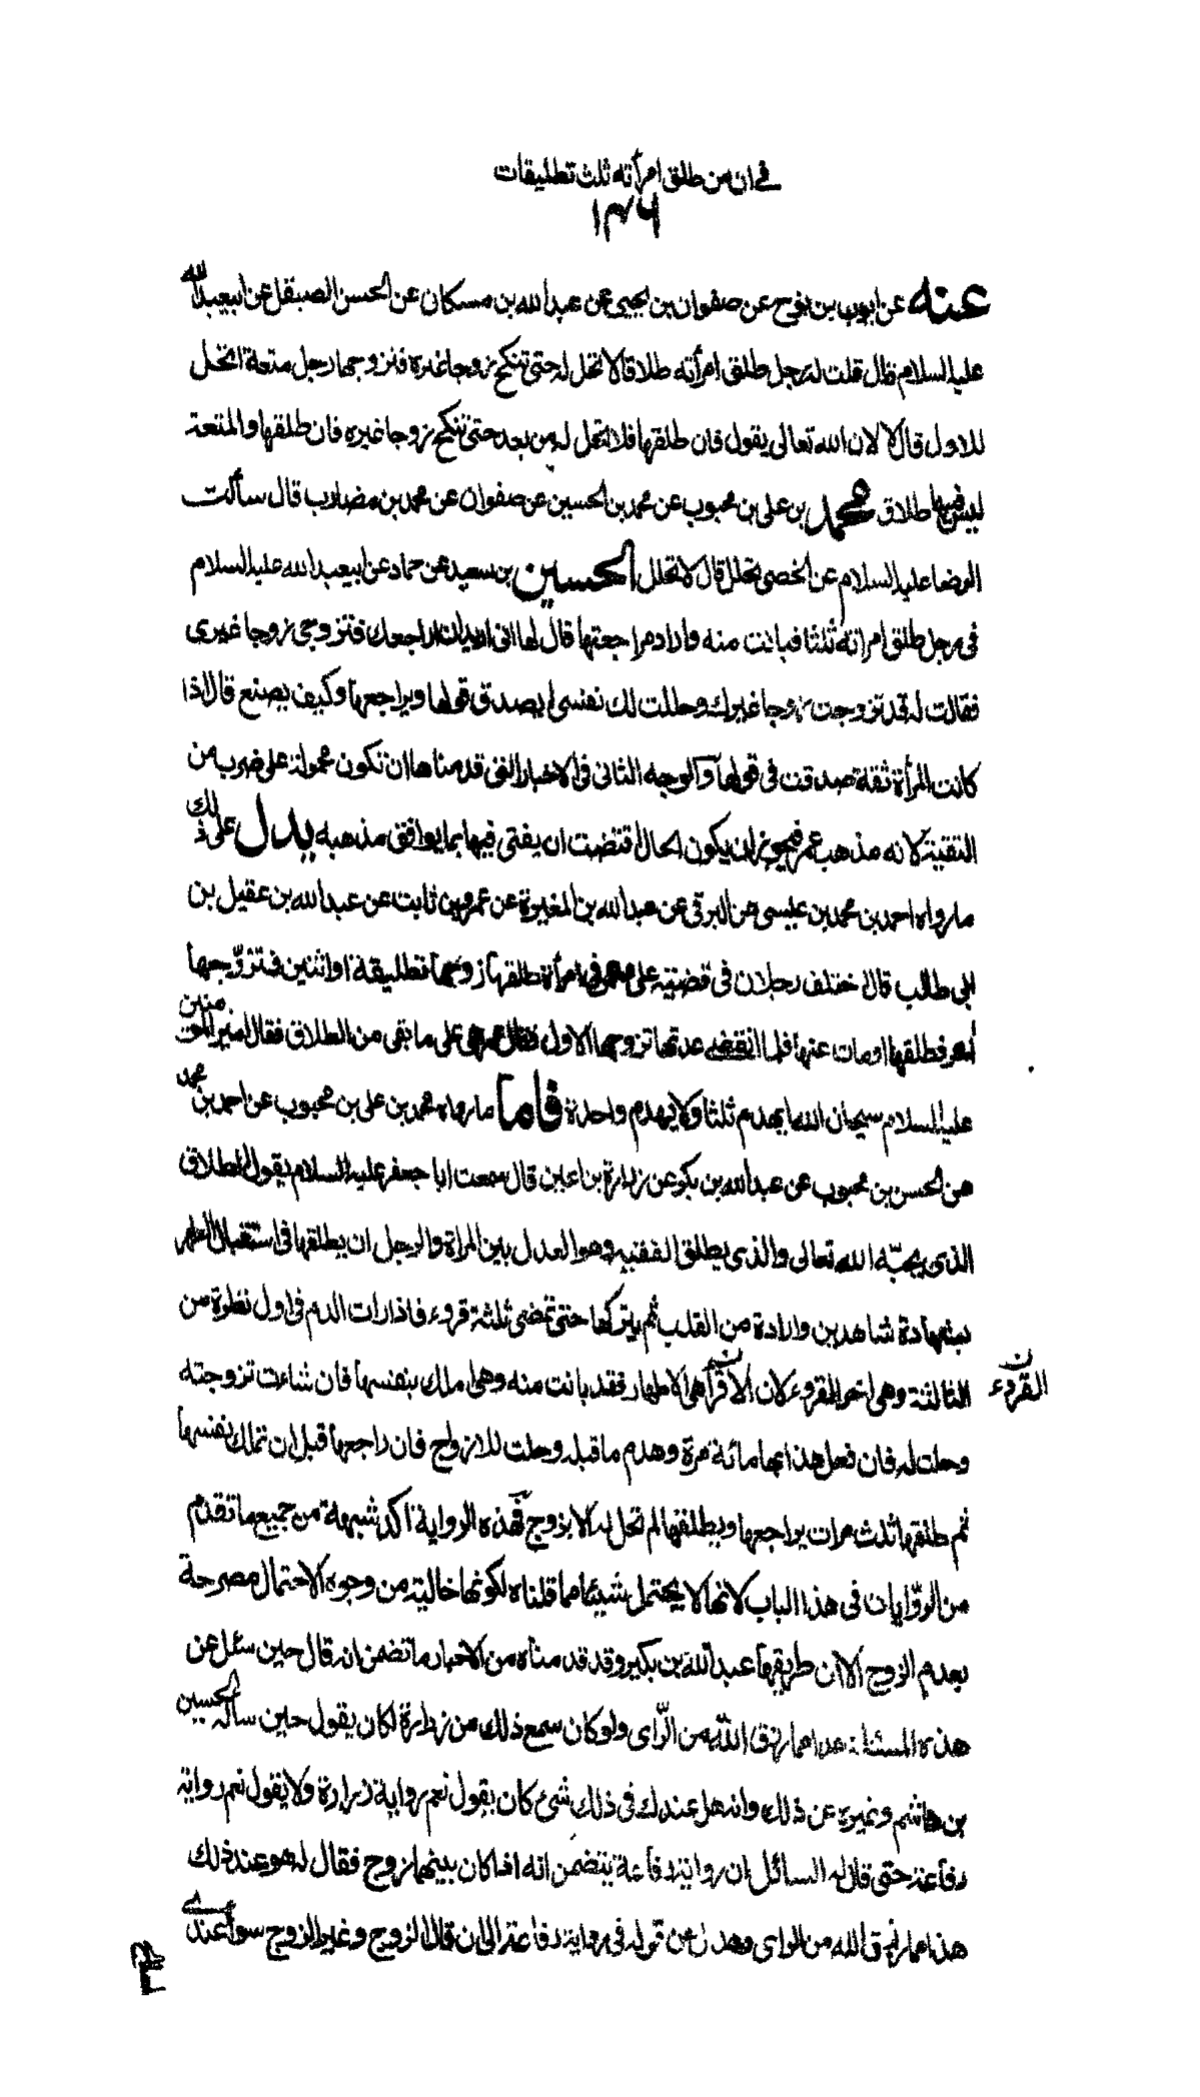 في ان من طلق امرأته ثلث تطليقات
عنه عن ايوب بن نوح عن صفوان بن يحيى عن عبدالله بن مسكان عن الحسن الصيقل عن ابيعبدالله
عليه السلام قال قلت له رجل طلق امرأته طلاقا لا تحل له حتى تنكح زوجا غيره فتزوجها رجل متعة اتحل
للاول قال لا لان الله تعالى يقول فان طلقها فلا تحل له من بعد حتى تنكح زوجا غيره فان طلقها والمتعة
ليس فيها طلاق محمد بن علي بن محبوب عن محمد بن الحسين عن صفوان عن محمد بن مضارب قال سألت
الرضا عليه السلام عن الخصي يحلل قال لا يحلل الحسين بن سعيد عن حماد عن ابيعبدالله عليه السلام
في رجل طلق امرأته ثلثا فبانت منه واراد مراجعتها قال لها اني اريد ان اراجعك فتزوجي زوجا غيري
فقالت له قد تزوجت زوجا غيرك وحللت لك نفسي ايصدق قولها ويراجعها وكيف يصنع قال اذا
كانت المرأة ثقة صدقت في قولها والوجه الثاني في الاخبار التي قدمناها ان تكون محمولة على ضرب من
التقية لانه مذهب عمر فيجوز ان يكون الحال اقتضت ان يفتي فيها بما يوافق مذهبه يدل على ذلك
ما رواه احمد بن محمد بن عيسى عن البرقي عن عبدالله بن المغيرة عن عمرو بن ثابت عن عبدالله بن عقيل بن
ابي طالب قال اختلف رجلان في قضية علي وعمر في امرأة طلقها زوجها تطليقة او اثنتين فتزوّجها
آخر فطلقها او مات عنها فلما انقضت عدتها تزوجها الاول فقال عمر هي على ما بقي من الطلاق فقال امير المؤمنين
عليه السلام سبحان الله ايهدم ثلثا ولا يهدم واحدة فاما ما رواه محمد بن علي بن محبوب عن احمد بن محمد
عن الحسن بن محبوب عن عبدالله بن بكير عن زرارة بن اعين قال سمعت ابا جعفر عليه السلام يقول الطلاق
الذي يحبّه الله تعالى والذي يطلق الفقيه وهو العدل بين المرأة والرجل ان يطلقها في استقبال الطهر
بشهادة شاهدين وارادة من القلب ثم يتركها حتى تمضي ثلثة قروء فاذا رات الدم في اول نظرة من
الثالثة وهي اخر القروء لان الاقرآء هي الاطهار فقد بانت منه وهي املك بنفسها فان شاءت تزوجته
القروء ن
وحلت له فان فعل هذا بها مائة مرة وهدم ما قبله وحلت للازواج فان راجعها قبل ان تملك نفسها
ثم طلقها ثلث مرات يراجعها ويطلقها لم تحل له الا بزوج فهذه الرواية اكد شبهة من جميع ما تقدم
من الروّايات في هذا الباب لانها لا يحتمل شيئا مما قلناه لكونها خالية من وجوه الاحتمال مصرحة
بعدم الزوج الا ان طريقها عبدالله بن بكير وقد قدمناه من الاخبار ما تضمن انه قال حين سئل عن
هذه المسئلة هذا مما رزق اللّه من الرّاى ولو كان سمع ذلك من زرارة لكان يقول حين ساله الحسين
بن هاشم وغيره عن ذلك وانه هل عندك في ذلك شئ كان يقول نعم رواية زرارة ولا يقول نعم رواية
رفاعة حتى قال له السائل ان رواية رفاعة يتضمن انه اذا كان بينهما زوج فقال له هو عند ذلك
هذا مما رزق الله من الراى وعدل من قوله في رواية رفاعة الى ان قال الزوج وغير الزوج سواء عندي